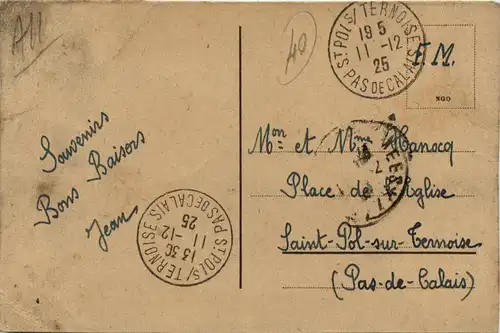 A11
40
ST POL S/TERNOISE
19 5
11 -12
25
PAS DE CALAIS
F.M.
NGO
Souvenirs
Bons Baisers
Jean
Mon et Mme Canocq
Place de l'Eglise
Saint-Pol-sur-Ternoise
(Pas-de-Calais)
ST POL S/TERNOISE
13 30
11 -12
25
PAS DE CALAIS